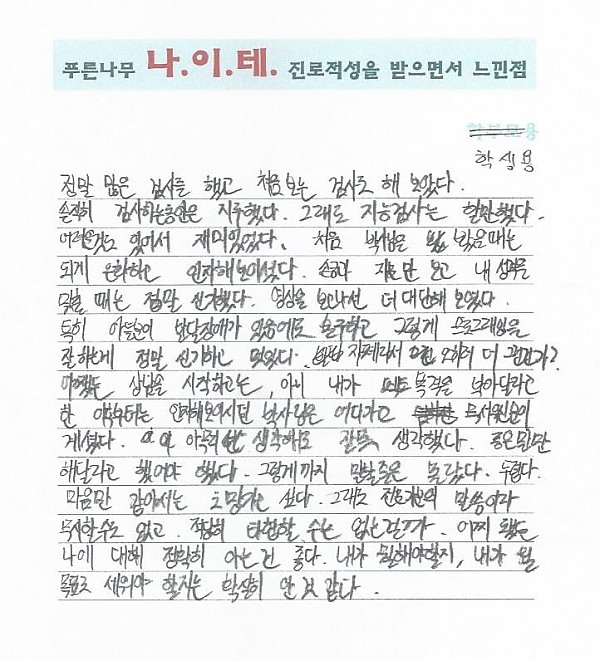 푸른나무 나.이.테. 진로적성을 받으면서 느낀점
학부모용
학생용
정말 많은 검사를 했고 처음보는 검사도 해 보았다.
솔직히 검사하는동안은 지루했다. 그래도 지능검사는 할만했다.
어려운것도 있어서 재미있었다. 처음 박사님을 뵀을때는
되게 온화하고 인자해보이셨다. 손금과 지문만 보고 내 성격을
맞출 때는 정말 신기했다. 영상을 보고나선 더 대단해 보였다.
특히 아들분이 발달장애가 있음에도 불구하고 그렇게 스도쿠게임을
잘하는게 정말 신기하고 멋있었다. 오히려 더
어쨌든 상담을 시작하고는, 아니 내가 독설을 날려달라고
한 이후부터는 인자해보이시던 박사님은 어디가고 독사한분이
계셨다. 아 아무리 생각해도 잘못 생각했다. 좋은말만
해달라고 했어야 했다. 그렇게까지 말할줄은 몰랐다. 두렵다.
마음만 같아서는 도망가고 싶다. 그래도 전문가분의 말씀이라
무시할수도 없고. 적당히 타협할 수는 없는건가. 어찌 됐든
나에 대해 정확히 아는건 좋다. 내가 뭘해야할지, 내가 뭘
목표로 세워야 할지는 확실히 안 것 같다.